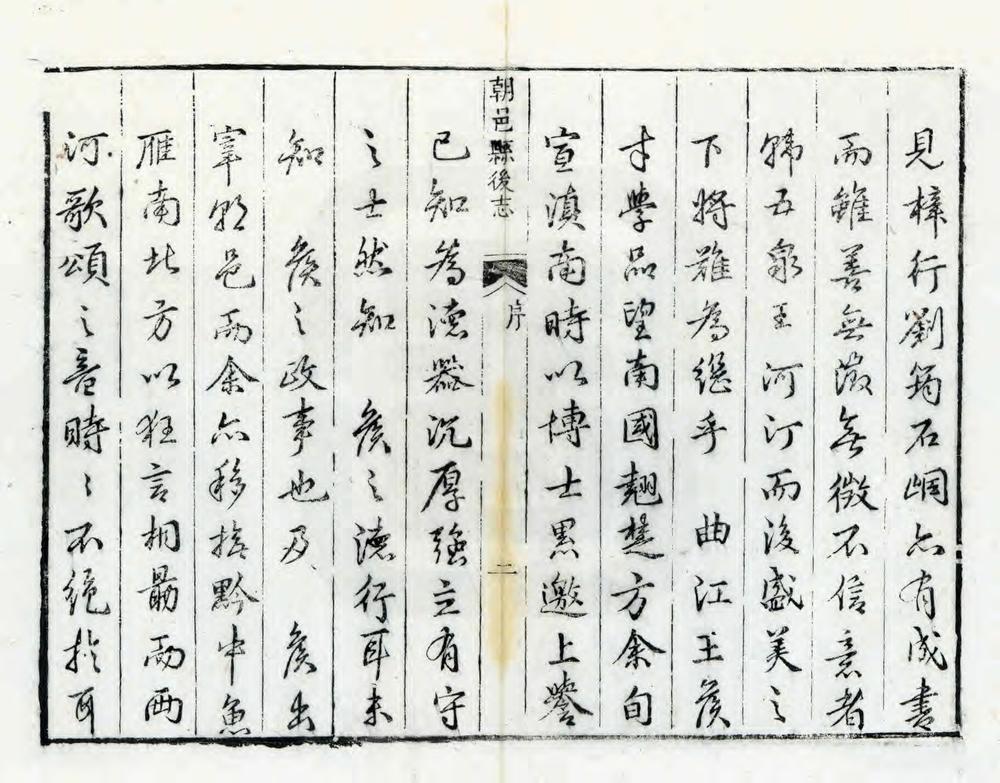 見梓行劉蒟石峒亦有成書
而雖善無徵無徵不信意者
韓五泉王河汀而後盛美之
下將難為繼乎　曲江王侯
才學品望南國翹楚方余旬
宣滇南時以博士累邀上譽
朝邑縣後志
序
二
已知為德器沉厚強立有守
之士然知　侯之德行耳未
知　侯之政事也及　侯出
宰朝邑而余亦移撫黔中魚
雁南北方以狂言相勗而西
河歌頌之音時時不絕於耳